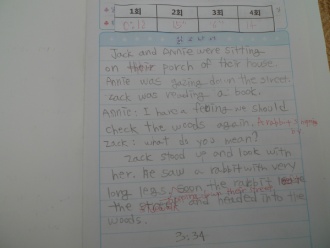 1회 2회 3회 4회
Jack and Annie were sitting
on their porch of their house.
Annie was gazing down the street.
Zack was reading a book.
Annie: I have a feeling we should
check the woods again.
Zack: what do you mean?
Zack stood up and look with
her. He saw a rabbit with very
long legs. soon, the rabbit
the and headed into the
woods.
3:34